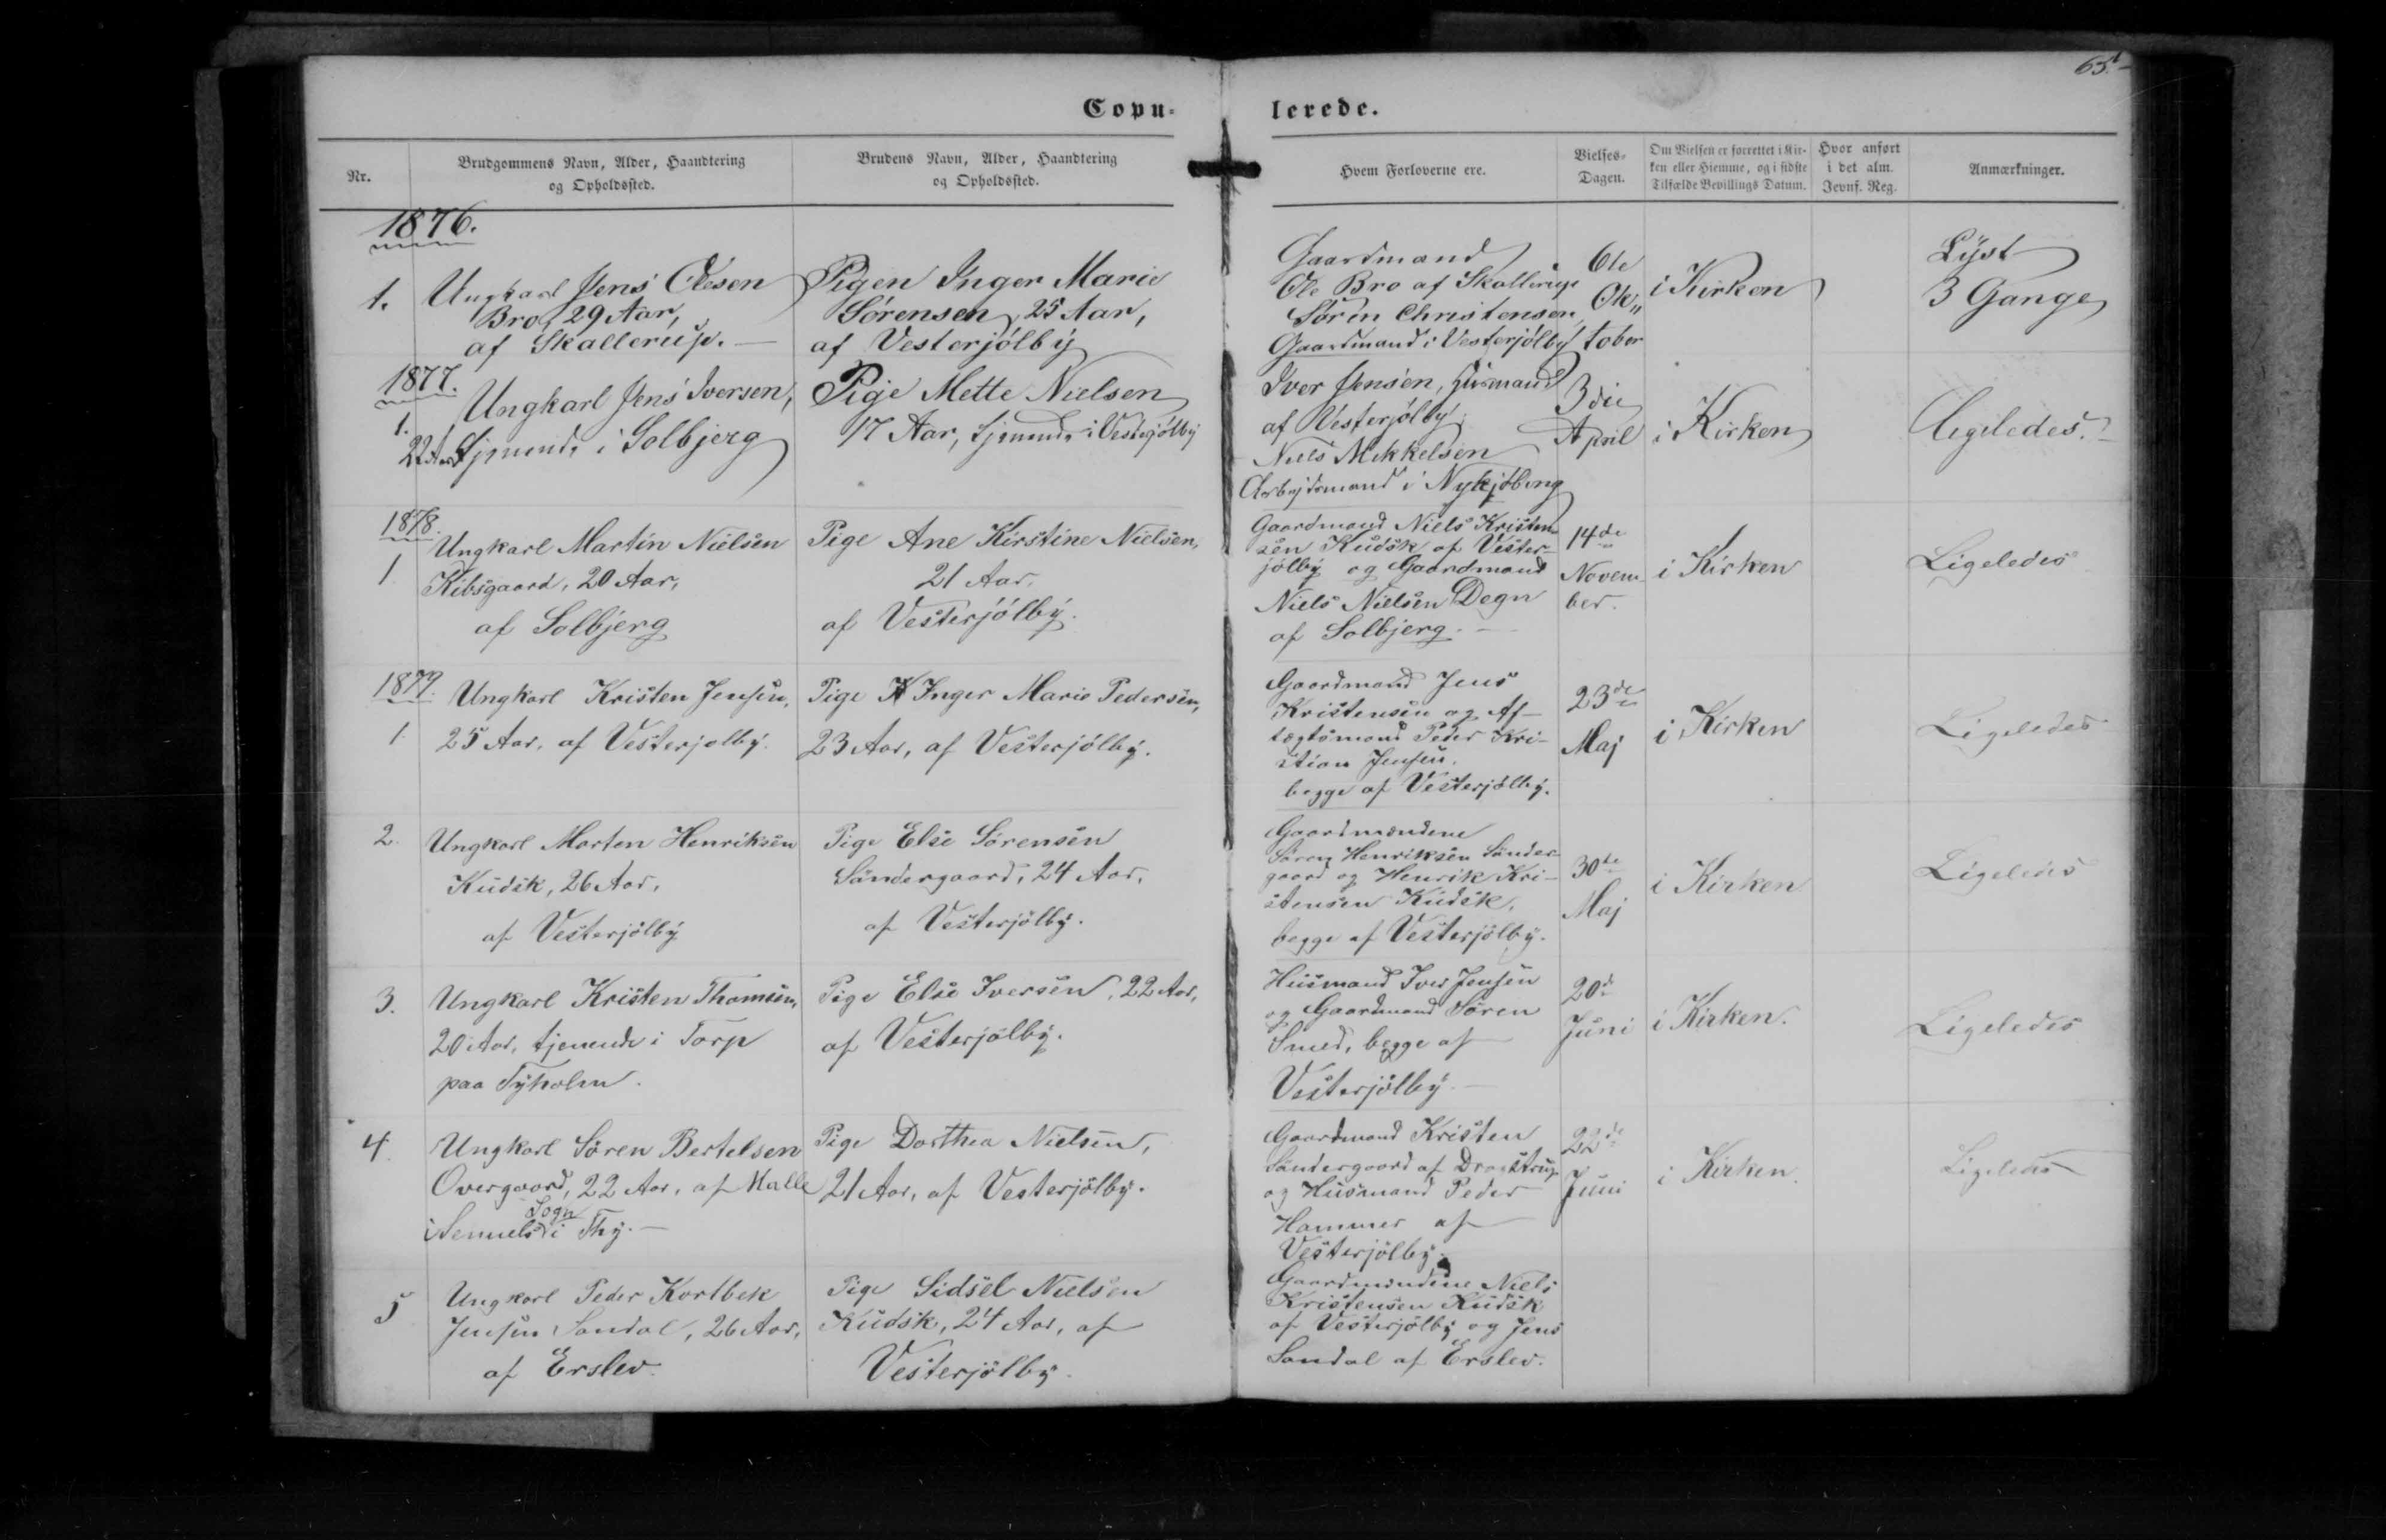 65.
Copulerede.
Nr.
Brudgommens Navn, Alder, Haandtering
og Opholdssted.
Brudens Navn, Alder, Haandtering
og Opholdssted.
Hvem Forloverne ere.
Vielses-
Dagen.
Om Vielsen er forrettet i Kir-
ken eller Hiemme, og i sidste
Tilfælde Bevillings Datum.
Hvor anført
i det alm.
Jevnf. Reg.
Anmærkninger.
1876.
1.
Ungkarl Jens Olesen
Bro, 29 Aar,
af Skallerup.
Pigen Inger Marie
Sørensen, 25 Aar,
af Vesterjølby
Gaardmand
Ole Bro af Skallerup
Søren Christensen
Gaardmand i Vesterjølby
6te
Ok„
tober
i Kirken
Lyst
3 Gange
1877.
1.
Ungkarl Jens Iversen,
22 Aar, tjenende i Solbjerg
Pige Mette Nielsen
17 Aar, tjenende i Vesterjølby
Iver Jensen, Husmand
af Vesterjølby
Niels Mikkelsen
Arbejdsmand i Nykjøbing
3die
April
i Kirken
Ligeledes.
1878.
1
Ungkarl Martin Nielsen
Kibsgaard, 20 Aar,
af Solbjerg
Pige Ane Kirstine Nielsen,
21 Aar,
af Vesterjölby.
Gaardmand Niels Kristen-
sen Kudsk af Vester-
jölby og Gaardmand
Niels Nielsen Degn
af Solbjerg.
14de
Novem-
ber.
i Kirken
Ligeledes
1879.
1.
Ungkarl Kristen Jensen,
25 Aar, af Vesterjølby.
Pige Inger Marie Pedersen,
23 Aar, af Vesterjölby.
Gaardmand Jens
Kristensen og Af-
tægtsmand Peder Kri-
stian Jensen,
begge af Vesterjölby.
23de
Maj
i Kirken
Ligeledes
2.
Ungkarl Morten Henriksen
Kudsk, 26 Aar,
af Vesterjölby
Pige Else Sörensen
Söndergaard, 24 Aar,
af Vesterjölby.
Gaardmændene
Sören Henriksen Sönder-
gaard og Henrik Kri-
stensen Kudsk,
begge af Vesterjölby.
30te
Maj
i Kirken
Ligeledes
3.
Ungkarl Kristen Thomsen,
20 Aar, tjenende i Torp
paa Tyholm.
Pige Else Iversen, 22 Aar,
af Vesterjölby.
Husmand Iver Jensen
og Gaardmand Sören
Smed, begge af
Vesterjölby.
20de
Juni
i Kirken.
Ligeledes
4.
Ungkarl Sören Bertelsen
Overgaard, 22 Aar, af Malle
i Sennels Sogn i Thy.
Pige Dorthea Nielsen,
21 Aar, af Vesterjölby.
Gaardmand Kristen
Söndergaard af Dragstrup
og Husmand Peder
Hammer af
Vesterjölby.
22de
Juni
i Kirken.
Ligeledes
5
Ungkarl Peder Kortbek
Jensen Sandal, 26 Aar,
af Erslev.
Pige Sidsel Nielsen
Kudsk, 24 Aar, af
Vesterjölby.
Gaardmændene Niels
Kristensen Kudsk
af Vesterjölby og Jens
Sandal af Erslev.